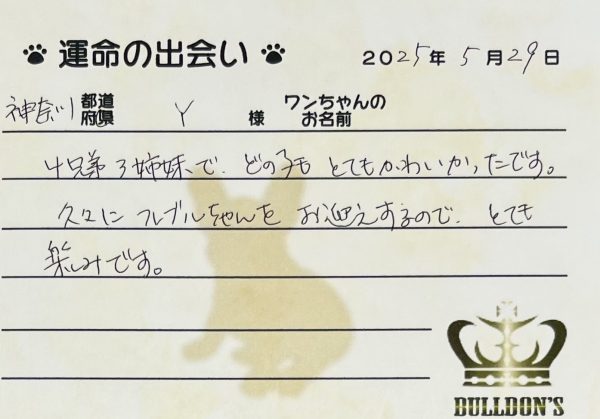 運命の出会い 2025年5月29日
神奈川 都道府県 Y 様 ワンちゃんのお名前
4兄弟3姉妹で、どの子もとてもかわいかったです。
久々にフレブルちゃんをお迎えするので、とても
楽しみです。
BULLDON'S